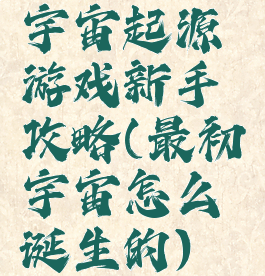 宇宙起源
游戏新手
攻略(最初
宇宙怎么
诞生的)